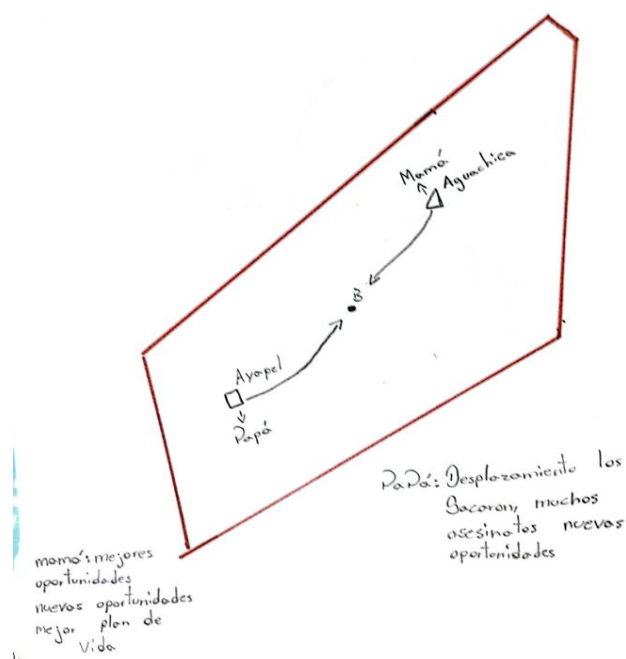 Mamá
Aguachica
B
Ayapel
Papá
PaPá: Desplazamiento los
Sacaron, muchos
asesinatos nuevas
oportenidades
mamá: mejores
oportunidades
nuevas oportunidades
mejor plan de
vida